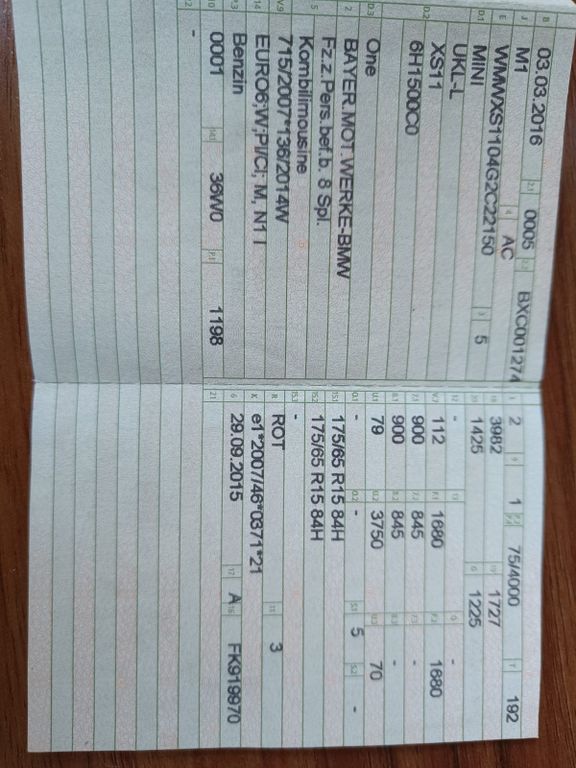 B 03.03.2016 2.1 0005 2.2 BXC001274
J M1 4 AC
E WMWXS1104G2C22150 3 5
D.1 MINI
UKL-L
D.2 XS11
6H1500C0
D.3 One
2 BAYER.MOT.WERKE-BMW
5 Fz.z.Pers.bef.b. 8 Spl.
Kombilimousine
V.9 715/2007*136/2014W
14 EURO6;W;PI/CI; M, N1 I
P.3 Benzin
10 0001 14.1 36W0 P.1 1198
22 -
L 2 9 1 P.2/P.4 75/4000 T 192
18 3982 19 1727
20 1425 G 1225
12 - 13 - Q -
V.7 112 F.1 1680 F.2 1680
7.1 900 7.2 845 7.3 -
8.1 900 8.2 845 8.3 -
U.1 79 U.2 3750 U.3 70
O.1 - O.2 - S.1 5 S.2 -
15.1 175/65 R15 84H
15.2 175/65 R15 84H
15.3 -
R ROT 11 3
K e1*2007/46*0371*21
6 29.09.2015 17 A 16 FK919970
21